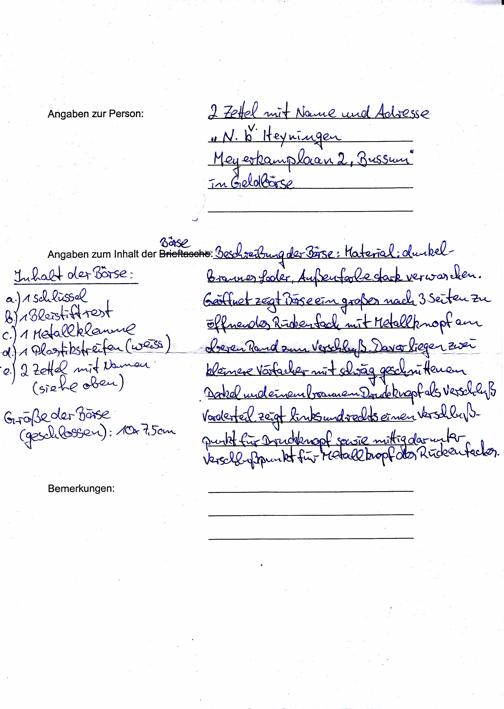 Angaben zur Person:
2 Zettel mit Name und Adresse
"N. v. Heyningen
Meyerkamplaan 2, Bussum"
in Geldbörse
Angaben zum Inhalt der Brieftasche: Börse
Beschreibung der Börse: Material: dunkel-
braunes Leder, Außenfarbe stark verwaschen.
Geöffnet zeigt Börse ein großes nach 3 Seiten zu
öffnendes Rückenfach mit Metallknopf am
oberen Rand zum Verschluß. Davor liegen zwei
kleinere Vorfächer mit schräg geschnittenen
Deckel und einem braunen Druckknopf als Verschluß
Vorderteil zeigt links und rechts einen Verschluß-
punkt für Druckknopf sowie mittig darunter
Verschlußpunkt für Metallknopf des Rückenfaches.
Inhalt der Börse:
a.) 1 Schlüssel
b) 1 Bleistiftrest
c.) 1 Metallklammer
d.) 1 Plastikstreifen (weiss)
e.) 2 Zettel mit Namen
(siehe oben)
Größe der Börse
(geschlossen): 10x7,5cm
Bemerkungen: